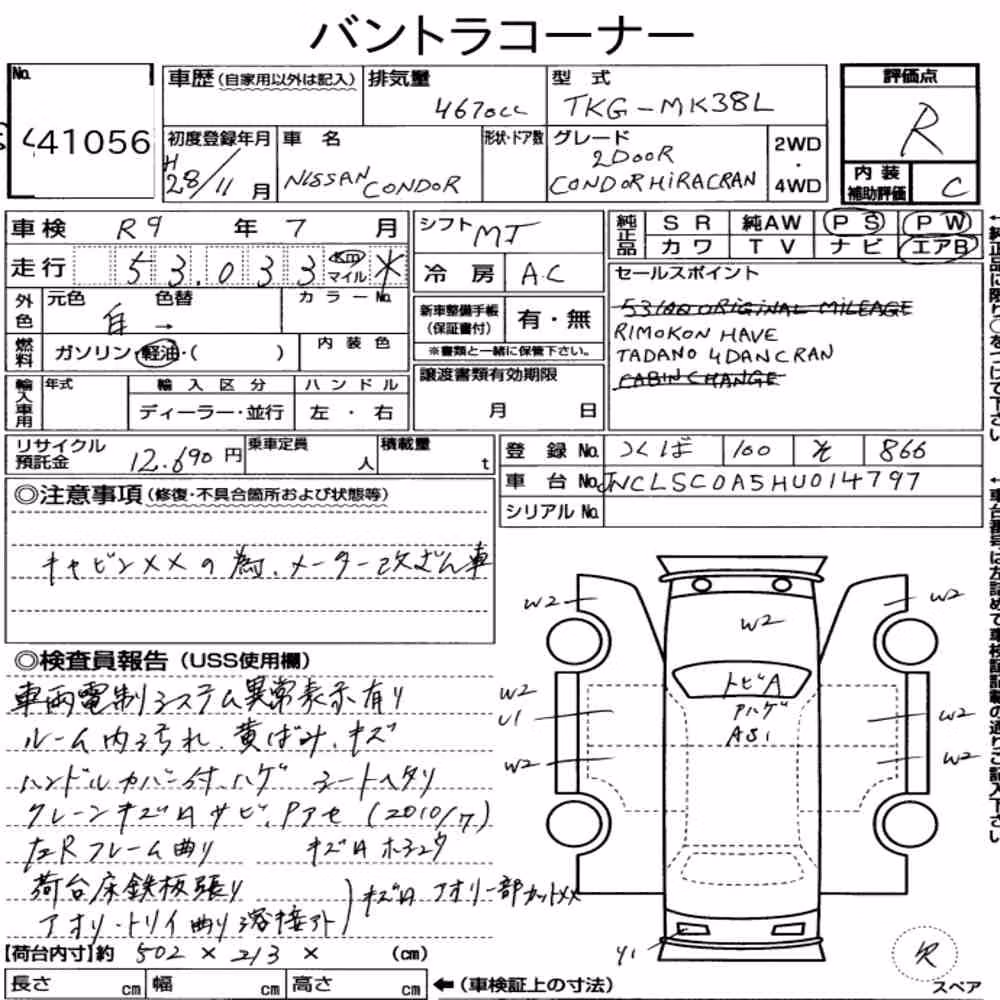 バントラコーナー
No.
41056
車歴（自家用以外は記入）
排気量
4670cc
型 式
TKG-MK38L
評価点
R
初度登録年月
H
28/11 月
車 名
NISSAN CONDOR
形状・ドア数
グレード
2DOOR
CONDOR HIRACRAN
2WD
・
4WD
内 装
補助評価
C
車検 R9 年 7 月
シフト MT
純正品
S R 純AW P S P W
カワ T V ナビ エアB
走行 53,033 Km マイル *
冷 房 A.C
セールスポイント
53100 ORIGINAL MILEAGE
RIMOKON HAVE
TADANO 4DANCRAN
CABIN CHANGE
外色
元色 白 → 色替
カラーNo.
新車整備手帳
（保証書付）
有・無
※書類と一緒に保管下さい。
燃料
ガソリン・軽油・（ ）
内 装 色
譲渡書類有効期限
月 日
輸入車用
年式
輸 入 区 分
ディーラー・並行
ハ ン ド ル
左 ・ 右
リサイクル
預託金 12,690 円
乗車定員
人
積載量
t
登 録 No. つくば 100 そ 866
車 台 No. JNCLSC0A5HU014797
シリアル No.
◎注意事項（修復・不具合箇所および状態等）
キャビンメメの為、メーター改ざん車
◎検査員報告（USS使用欄）
車両電制システム異常表示有り
ルーム内汚れ、黄ばみ、キズ
ハンドルカバー付、ハゲ シートヘタリ
クレーンキズ サビ、Pアセ (2010/7)
左Rフレーム曲り
荷台床鉄板張り
アオリ・トリイ曲り溶接外
キズ アオリ一部カットメメ
【荷台内寸】約 502 × 213 × (cm)
長さ cm 幅 cm 高さ cm
←（車検証上の寸法）
W2
W2
W2
W2
U1
W2
W2
W2
トビA
Aハゲ
AS1
Y1
欠
スペア
←純正品に限り○をつけて下さい。
←車台番号は左詰めで車検証記載の通りご記入下さい